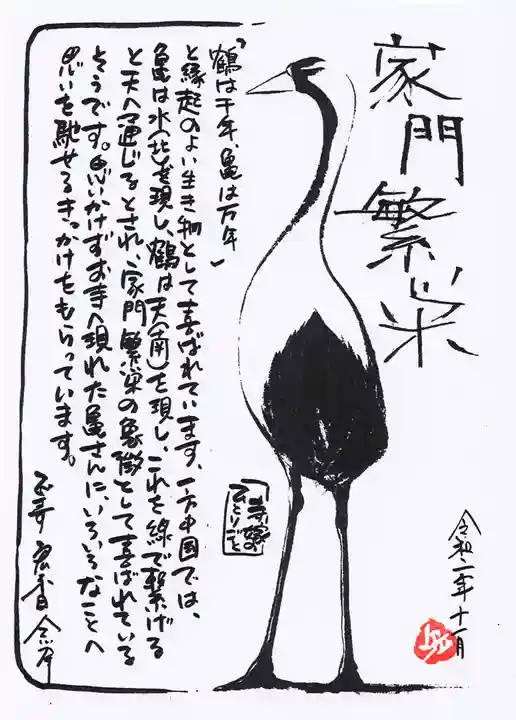 家門繁栄
「鶴は千年、亀は万年」
と縁起のよい生き物として喜ばれています、一方中国では、
亀は水(北)を現し、鶴は天(南)を現し、これを線で繋げる
と天へ通じるとされ、家門繁栄の象徴として喜ばれている
そうです。思いかけずお寺へ現れた亀さんに、いろいろなことへ
思いを馳せるきっかけをもらっています。
寺嫁の
ひとりごと
令和二年十一月